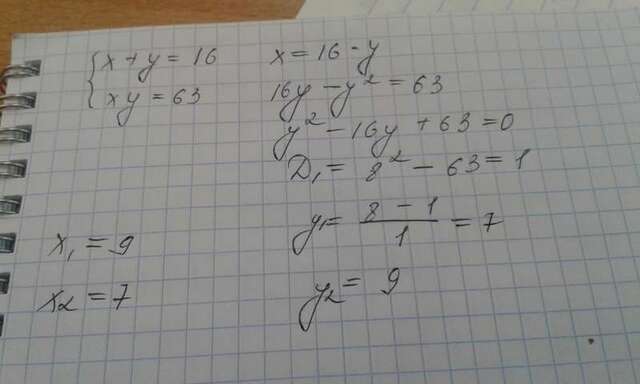 { x + y = 16
xy = 63
x = 16 - y
16y - y² = 63
y² - 16y + 63 = 0
D₁ = 8² - 63 = 1
y₁ = (8 - 1)/1 = 7
y₂ = 9
x₁ = 9
x₂ = 7